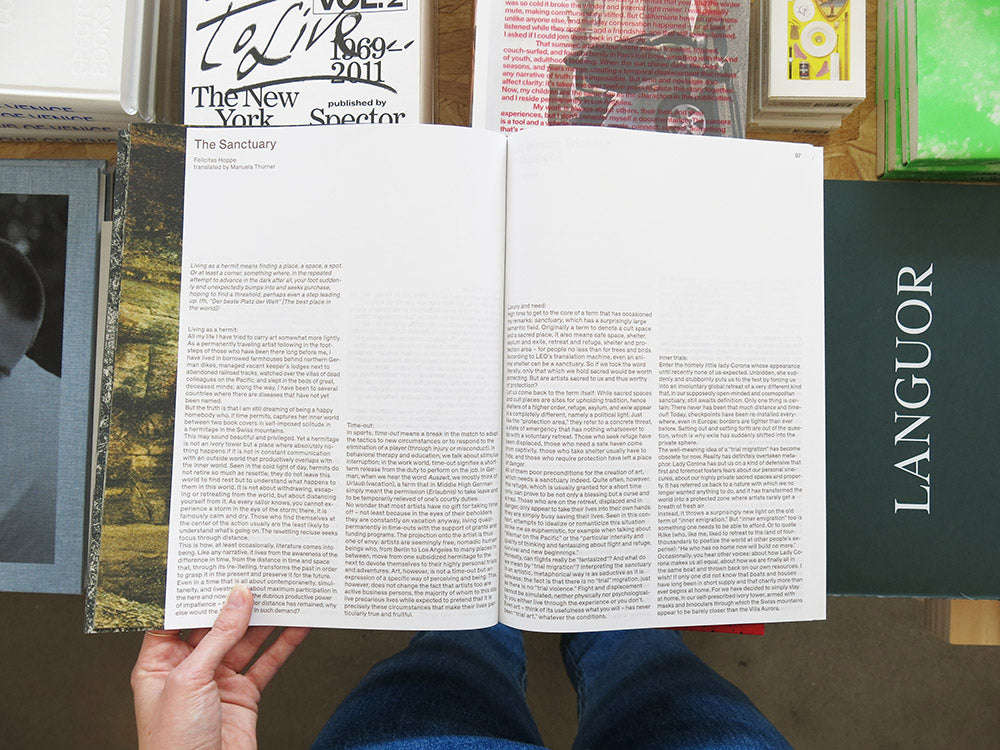 VOL.2
To Live
1969-
2011
The New
York
published by
Spector
OF VENICE
LANGUOR
The Sanctuary
Felicitas Hoppe
translated by Manuela Thurner
Living as a hermit means finding a place, a space, a spot.
Or at least a corner, something where, in the repeated
attempt to advance in the dark after all, your foot sudden-
ly and unexpectedly bumps into and seeks purchase,
hoping to find a threshold, perhaps even a step leading
up. (fh, "Der beste Platz der Welt" [The best place in
the world])
Living as a hermit:
All my life I have tried to carry art somewhat more lightly.
As a permanently traveling artist following in the foot-
steps of those who have been there long before me, I
have lived in borrowed farmhouses behind northern Ger-
man dikes, managed vacant keeper's lodges next to
abandoned railroad tracks, watched over the villas of dead
colleagues on the Pacific, and slept in the beds of great,
deceased minds; along the way, I have been to several
countries where there are diseases that have not yet
been named.
But the truth is that I am still dreaming of being a happy
homebody who, if time permits, captures her inner world
between two book covers in self-imposed solitude in
a hermitage in the Swiss mountains.
This may sound beautiful and privileged. Yet a hermitage
is not an ivory tower but a place where absolutely no-
thing happens if it is not in constant communication
with an outside world that productively overlaps with
the inner world. Seen in the cold light of day, hermits do
not retire so much as resettle; they do not leave this
world to find rest but to understand what happens to
them in this world. It is not about withdrawing, escap-
ing or retreating from the world, but about distancing
yourself from it. As every sailor knows, you cannot ex-
perience a storm in the eye of the storm; there, it is
famously calm and dry. Those who find themselves at
the center of action usually are the least likely to
understand what's going on. The resettling recluse seeks
focus through distance.
This is how, at least occasionally, literature comes into
being. Like any narrative, it lives from the awareness of the
difference in time, from the distance in time and space
that, through its (re-)telling, transforms the past in order
to grasp it in the present and preserve it for the future.
Even in a time that is all about contemporaneity, simul-
taneity, and livestreams, about maximum participation in
the here and now, about the ambiguous productive power
of impatience – for distance has remained, why
else would the which demand?
Time-out:
In sports, time-out means a break in the match to adapt
the tactics to new circumstances or to respond to the
elimination of a player (through injury or misconduct). In
behavioral therapy and education, we talk about stimulus
interruption; in the work world, time-out signifies a short-
term release from the duty to perform on the job. In Ger-
man, when we hear the word Auszeit, we mostly think of
Urlaub (vacation), a term that in Middle High German
simply meant the permission (Erlaubnis) to take leave and
to be temporarily relieved of one's courtly duties.
No wonder that most artists have no gift for taking time
off – not least because in the eyes of their beholders
they are constantly on vacation anyway, living quasi
permanently in time-outs with the support of grants and
funding programs. The projection onto the artist is thus
one of envy: artists are seemingly free, nomadic human
beings who, from Berlin to Los Angeles to many places in
between, move from one subsidized hermitage to the
next to devote themselves to their highly personal trials
and adventures. Art, however, is not a time-out but an
expression of a specific way of perceiving and being. This,
however, does not change the fact that artists too are
active business persons, the majority of whom to this day
live precarious lives while expected to pretend that it is
precisely these circumstances that make their lives par-
ticularly true and fruitful.
97
Luxury and need:
High time to get to the core of a term that has occasioned
my remarks: sanctuary, which has a surprisingly large
semantic field. Originally a term to denote a cult space
and a sacred place, it also means safe space, shelter,
asylum and exile, retreat and refuge, shelter and pro-
tection area – for people no less than for trees and birds.
According to LEO's translation machine, even an ani-
mal shelter can be a sanctuary. So if we took the word
literally, only that which we hold sacred would be worth
protecting. But are artists sacred to us and thus worthy
of protection?
Let us come back to the term itself. While sacred spaces
and cult places are sites for upholding tradition, hence
shelters of a higher order, refuge, asylum, and exile appear
in a completely different, namely a political light. Just
like the "protection area," they refer to a concrete threat,
a state of emergency that has nothing whatsoever to
do with a voluntary retreat. Those who seek refuge have
been displaced, those who need a safe haven come
from captivity, those who take shelter usually have to
hide, and those who require protection have left a place
of danger.
All of them poor preconditions for the creation of art,
which needs a sanctuary indeed. Quite often, however,
the refuge, which is usually granted for a short time
only, can prove to be not only a blessing but a curse and
a trap. Those who are on the retreat, displaced and in
danger, only appear to take their lives into their own hands:
they are simply busy saving their lives. Seen in this con-
text, attempts to idealize or romanticize this situation
strike me as euphemistic, for example when talking about
"Weimar on the Pacific" or the "particular intensity and
beauty of thinking and fantasizing about flight and refuge,
survival and new beginnings."
Honestly, can flights really be "fantasized"? And what do
we mean by "trial migration"? Interpreting the sanctuary
in an artistic, metaphorical way is as seductive as it is
useless; the fact is that there is no "trial" migration, just
as there is no "trial violence." Flight and displacement
cannot be simulated, neither physically nor psychological-
ly, you either live through the experience or you don't.
Even art – think of its usefulness what you will – has never
been "trial art," whatever the conditions.
Inner trials:
Enter the homely little lady Corona whose appearance
until recently none of us expected. Unbidden, she sud-
denly and stubbornly puts us to the test by forcing us
into an involuntary global retreat of a very different kind
that, in our supposedly open-minded and cosmopolitan
sanctuary, still awaits definition. Only one thing is cer-
tain: There never has been that much distance and time-
out! Today, checkpoints have been re-installed every-
where, even in Europe; borders are tighter than ever
before. Setting out and setting forth are out of the ques-
tion, which is why exile has suddenly shifted into the
private sphere.
The well-meaning idea of a "trial migration" has become
obsolete for now. Reality has definitely overtaken meta-
phor. Lady Corona has put us on a kind of defensive that
first and foremost fosters fears about our personal sine-
cures, about our highly private sacred spaces and proper-
ty. It has referred us back to a nature with which we no
longer wanted anything to do, and it has transformed the
world into a protected zone where artists rarely get a
breath of fresh air.
Instead, it throws a surprisingly new light on the old
term of "inner emigration." But "inner emigration" too is
something one needs to be able to afford. Or to quote
Rilke (who, like me, liked to retreat to the land of four-
thousanders to poetize the world at other people's ex-
pense): "He who has no home now will build no more."
Occasionally, you hear other voices: about how Lady Co-
rona makes us all equal, about how we are finally all in
the same boat and thrown back on our own resources. I
wish! If only one did not know that boats and houses
have long been in short supply and that charity more than
ever begins at home. For we have decided to simply stay
at home, in our self-prescribed ivory tower, armed with
masks and binoculars through which the Swiss mountains
appear to be barely closer than the Villa Aurora.